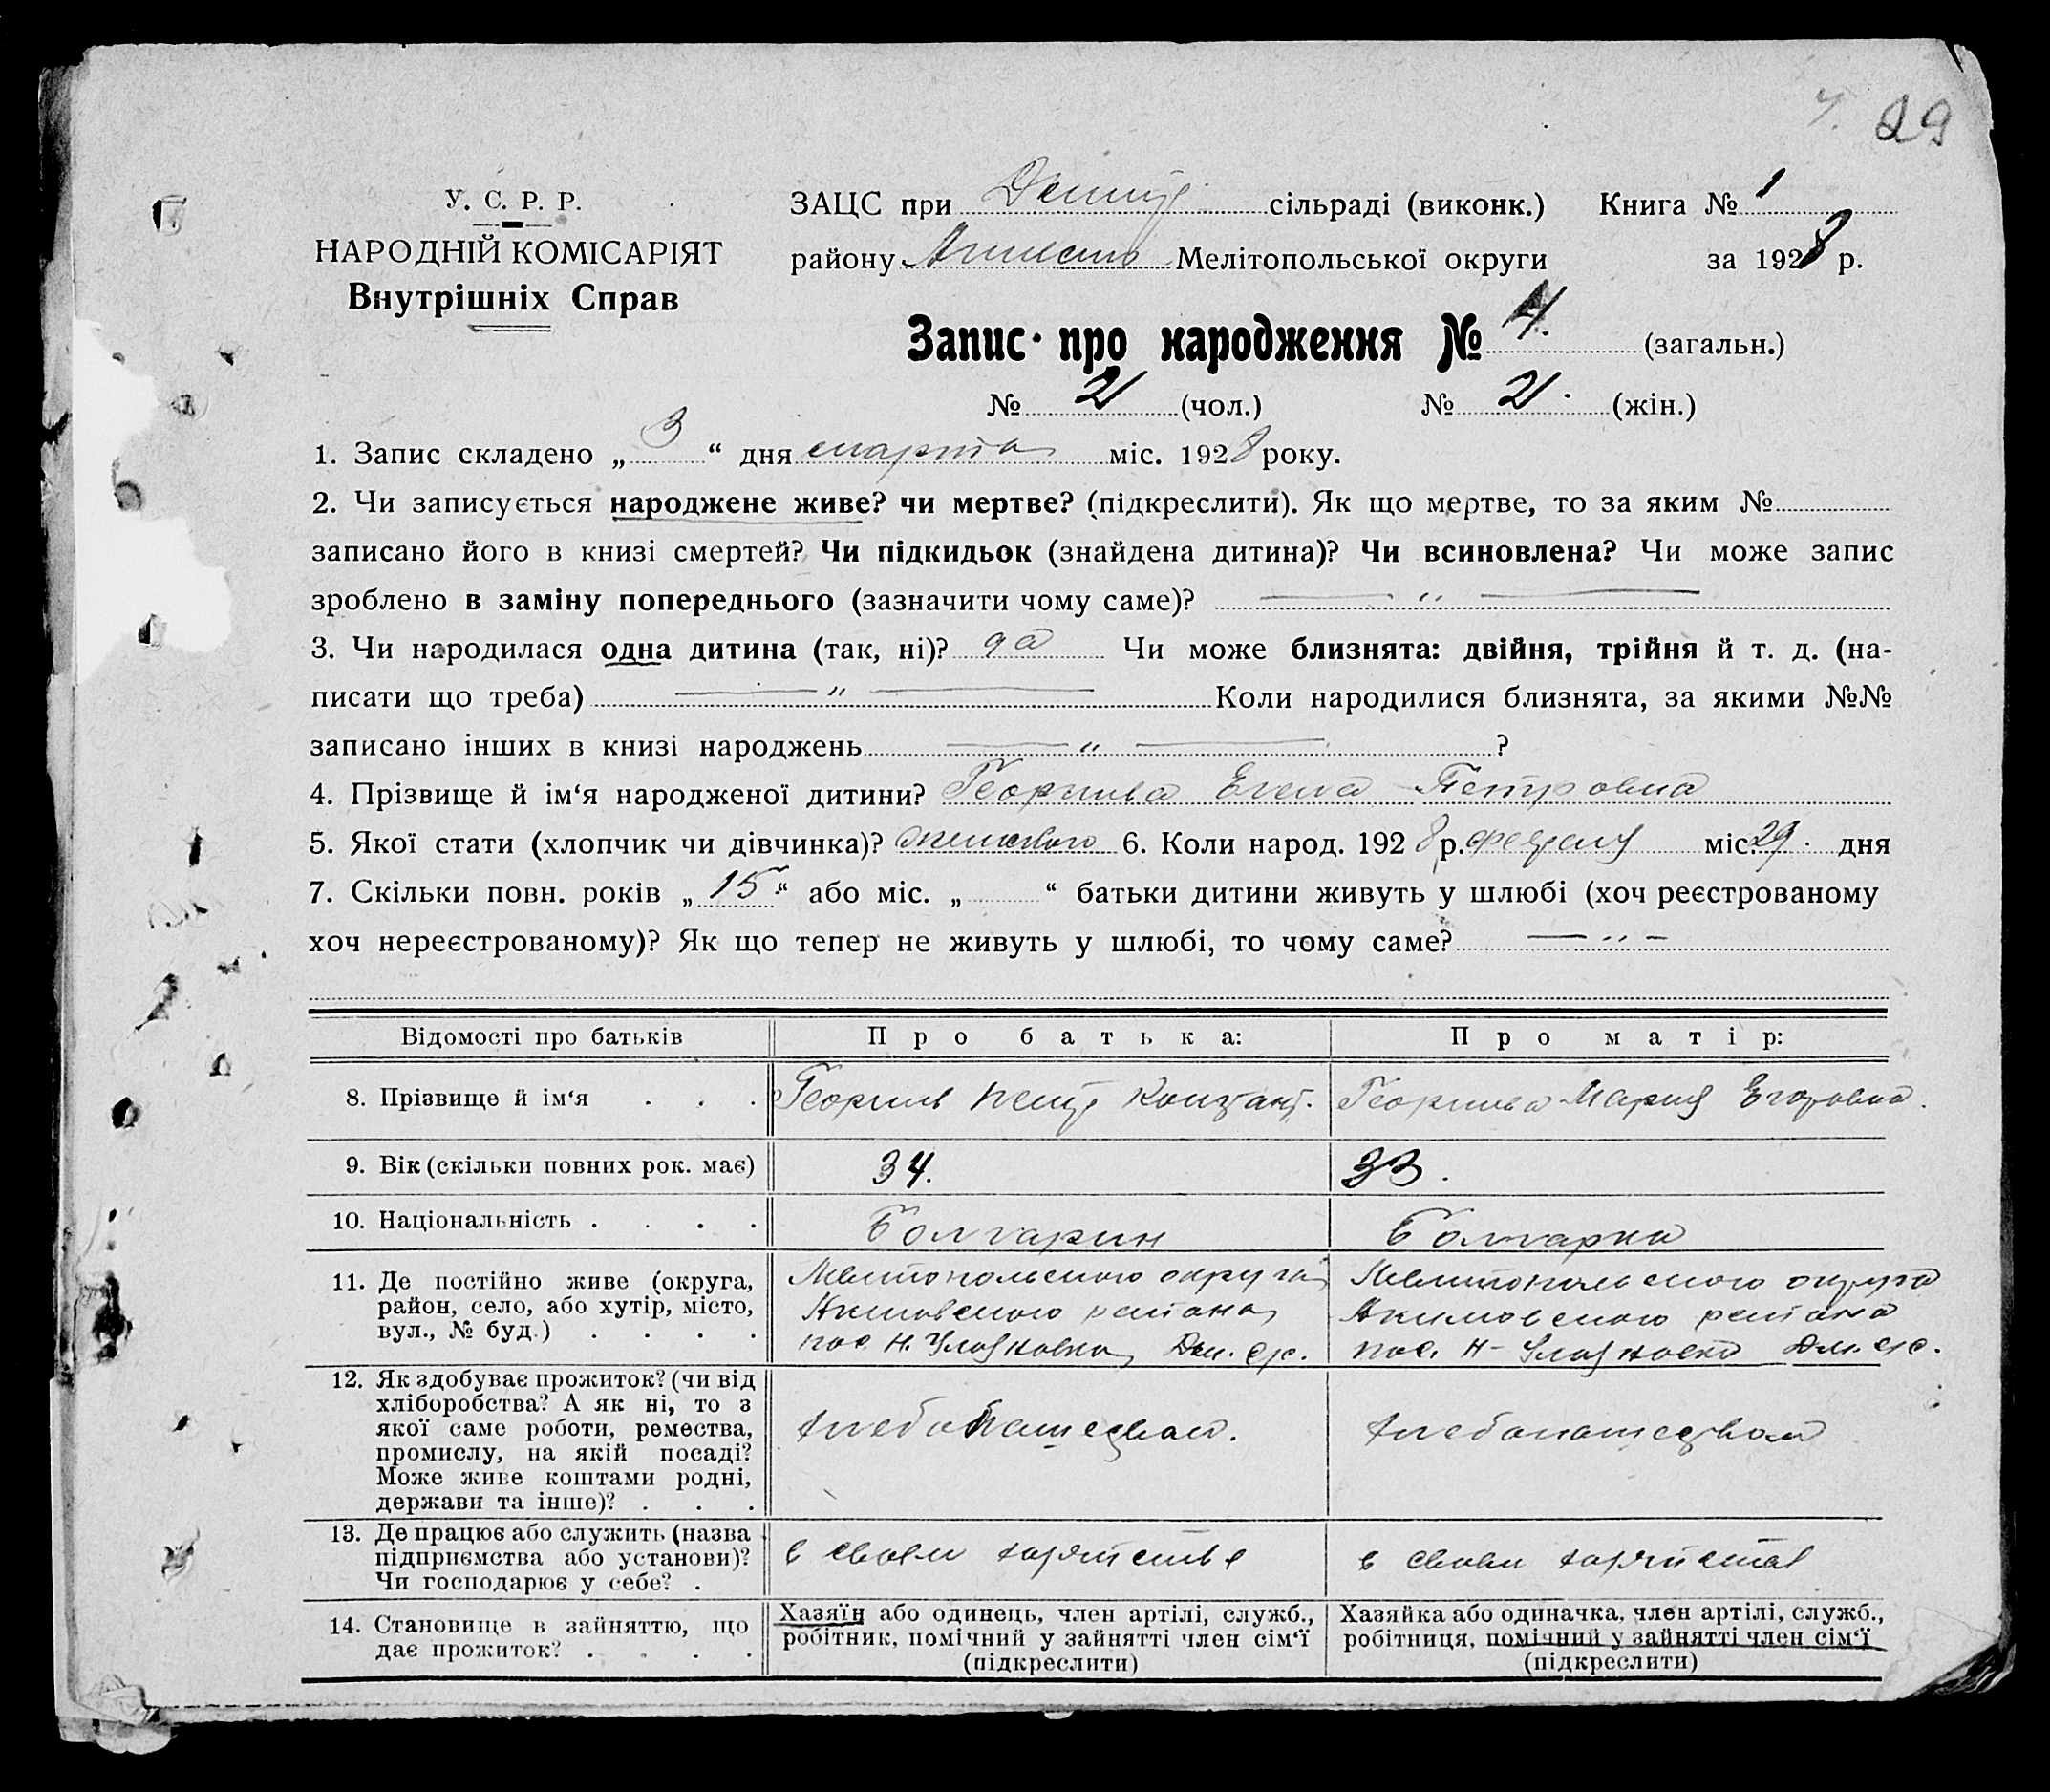 29
У. С. Р. Р.
НАРОДНІЙ КОМІСАРІЯТ
Внутрішніх Справ
ЗАЦС при сільраді (виконк.) Книга № 1
району Мелітопольської округи за 1928 р.
Запис про народження № 4. (загальн.)
№ 2 (чол.) № 2. (жін.)
1. Запис складено „ 3 “ дня марта міс. 1928 року.
2. Чи записується народжене живе? чи мертве? (підкреслити). Як що мертве, то за яким №
записано його в книзі смертей? Чи підкидьок (знайдена дитина)? Чи всиновлена? Чи може запис
зроблено в заміну попереднього (зазначити чому саме)? — „ —
3. Чи народилася одна дитина (так, ні)? да Чи може близнята: двійня, трійня й т. д. (на-
писати що треба) — „ — Коли народилися близнята, за якими №№
записано інших в книзі народжень — „ — ?
4. Прізвище й ім‘я народженої дитини? Георгиева Елена Петровна
5. Якої стати (хлопчик чи дівчинка)? женского 6. Коли народ. 1928 р. міс. 29. дня
7. Скільки повн. років „ 15 “ або міс. „ “ батьки дитини живуть у шлюбі (хоч реєстрованому
хоч нереєстрованому)? Як що тепер не живуть у шлюбі, то чому саме? — „ —
Відомості про батьків Про батька: Про матір:
8. Прізвище й ім‘я . . . Георгиев Петр Констант. Георгиева Мария Егоровна.
9. Вік (скільки повних рок. має) 34. 33.
10. Національність . . . . Болгарин Болгарка
11. Де постійно живе (округа, Мелитопольского округа Мелитопольского округа
район, село, або хутір, місто, Акимовского района Акимовского района
вул., № буд.) . . . . пос. Н. пос. Н-
12. Як здобуває прожиток? (чи від
хліборобства? А як ні, то з
якої саме роботи, ремества, хлебопашеством. хлебопашеством
промислу, на якій посаді?
Може живе коштами родні,
держави та інше)? . . .
13. Де працює або служить (назва
підприємства або установи)? в своем хозяйстве в своем хозяйстве
Чи господарює у себе? .
14. Становище в зайняттю, що Хазяїн або одинець, член артілі, служб., Хазяйка або одиначка, член артілі, служб.,
дає прожиток? . . . . робітник, помічний у зайнятті член сім‘ї робітниця, помічний у зайнятті член сім‘ї
(підкреслити) (підкреслити)